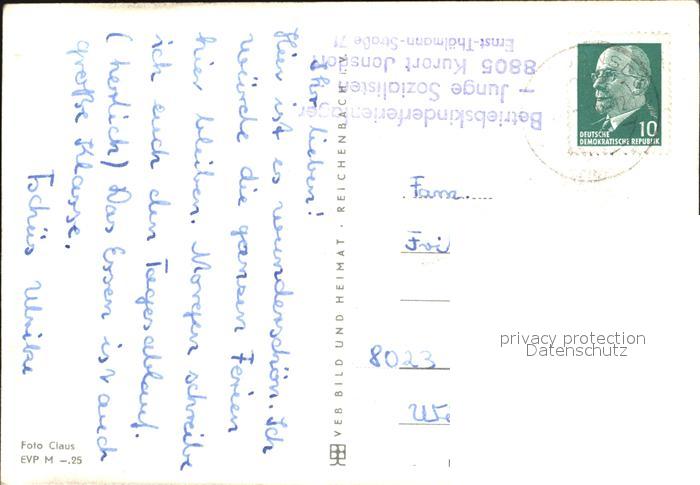 Ihr lieben!
Hier ist es wunderschön. Ich
würde die ganzen Ferien
hier bleiben. Morgen schreibe
ich euch den Tagesablauf.
(herlich) Das Essen ist auch
große Klasse.
Tschüs Ulrike
Foto Claus
EVP M –.25
VEB BILD UND HEIMAT · REICHENBACH I. V.
Betriebskinderferienlager
– Junge Sozialisten –
8805 Kurort Jonsdorf
Ernst-Thälmann-Straße 71
DEUTSCHE
DEMOKRATISCHE REPUBLIK
10
Fam.
8023
privacy protection
Datenschutz